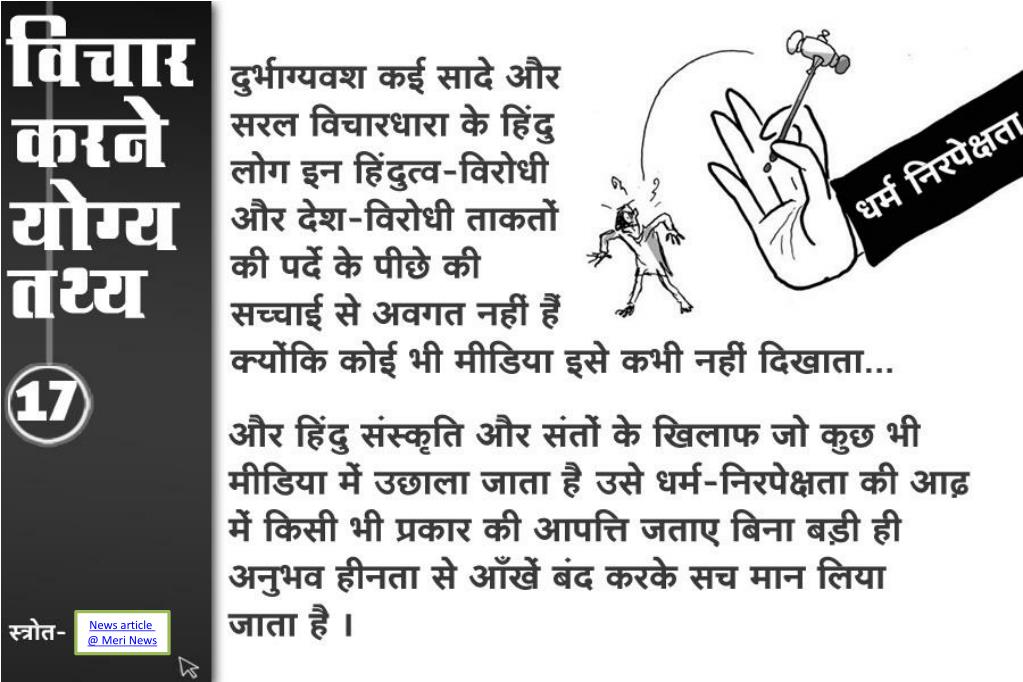 विचार
करने
योग्य
तथ्य
17
स्त्रोत-
News article
@ Meri News
दुर्भाग्यवश कई सादे और
सरल विचारधारा के हिंदु
लोग इन हिंदुत्व-विरोधी
और देश-विरोधी ताकतों
की पर्दे के पीछे की
सच्चाई से अवगत नहीं हैं
क्योंकि कोई भी मीडिया इसे कभी नहीं दिखाता...
और हिंदु संस्कृति और संतों के खिलाफ जो कुछ भी
मीडिया में उछाला जाता है उसे धर्म-निरपेक्षता की आढ़
में किसी भी प्रकार की आपत्ति जताए बिना बड़ी ही
अनुभव हीनता से आँखें बंद करके सच मान लिया
जाता है ।
धर्म निरपेक्षता